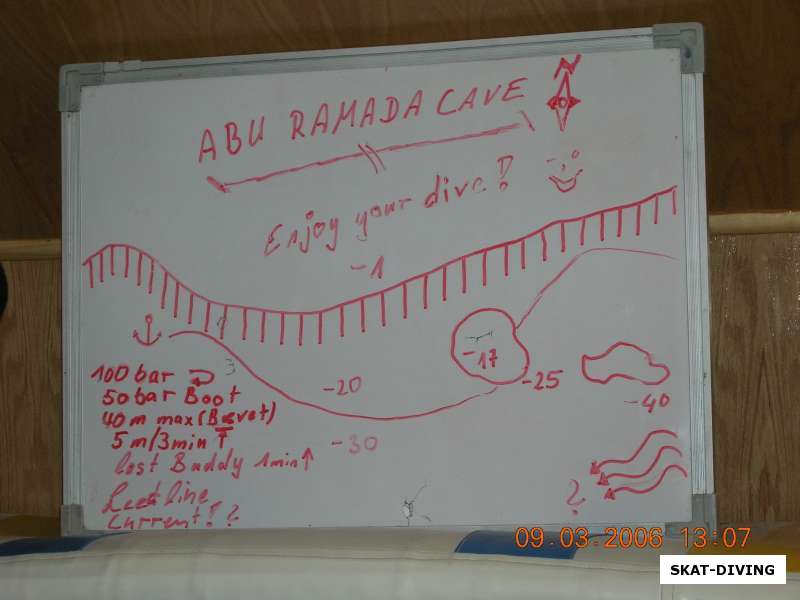 N
ABU RAMADA CAVE
Enjoy your dive!
-1
-17
-25
-20
-40
-30
100 bar
50 bar Boot
40 m max (Brevet)
5 m/3min
lost Buddy 1min
line
current!?
?
09.03.2006 13:07
SKAT-DIVING